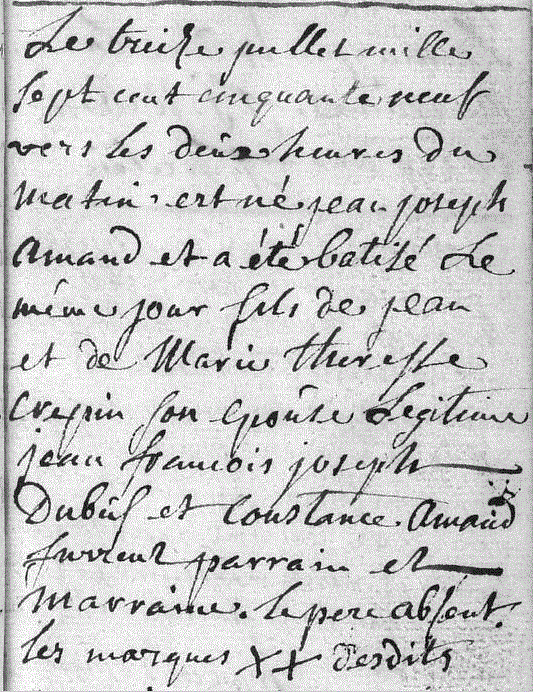 Le treize juillet mille
sept cent cinquante neuf
vers les deux heures du
matin est né jean joseph
amand et a été batisé Le
même jour fils de jean
et de Marie theresse
crepin son epouse Legitime
jean francois joseph
Dubus et Constance. amand
furent parrain et
marraine. le pere absent.
les marques XX desdits